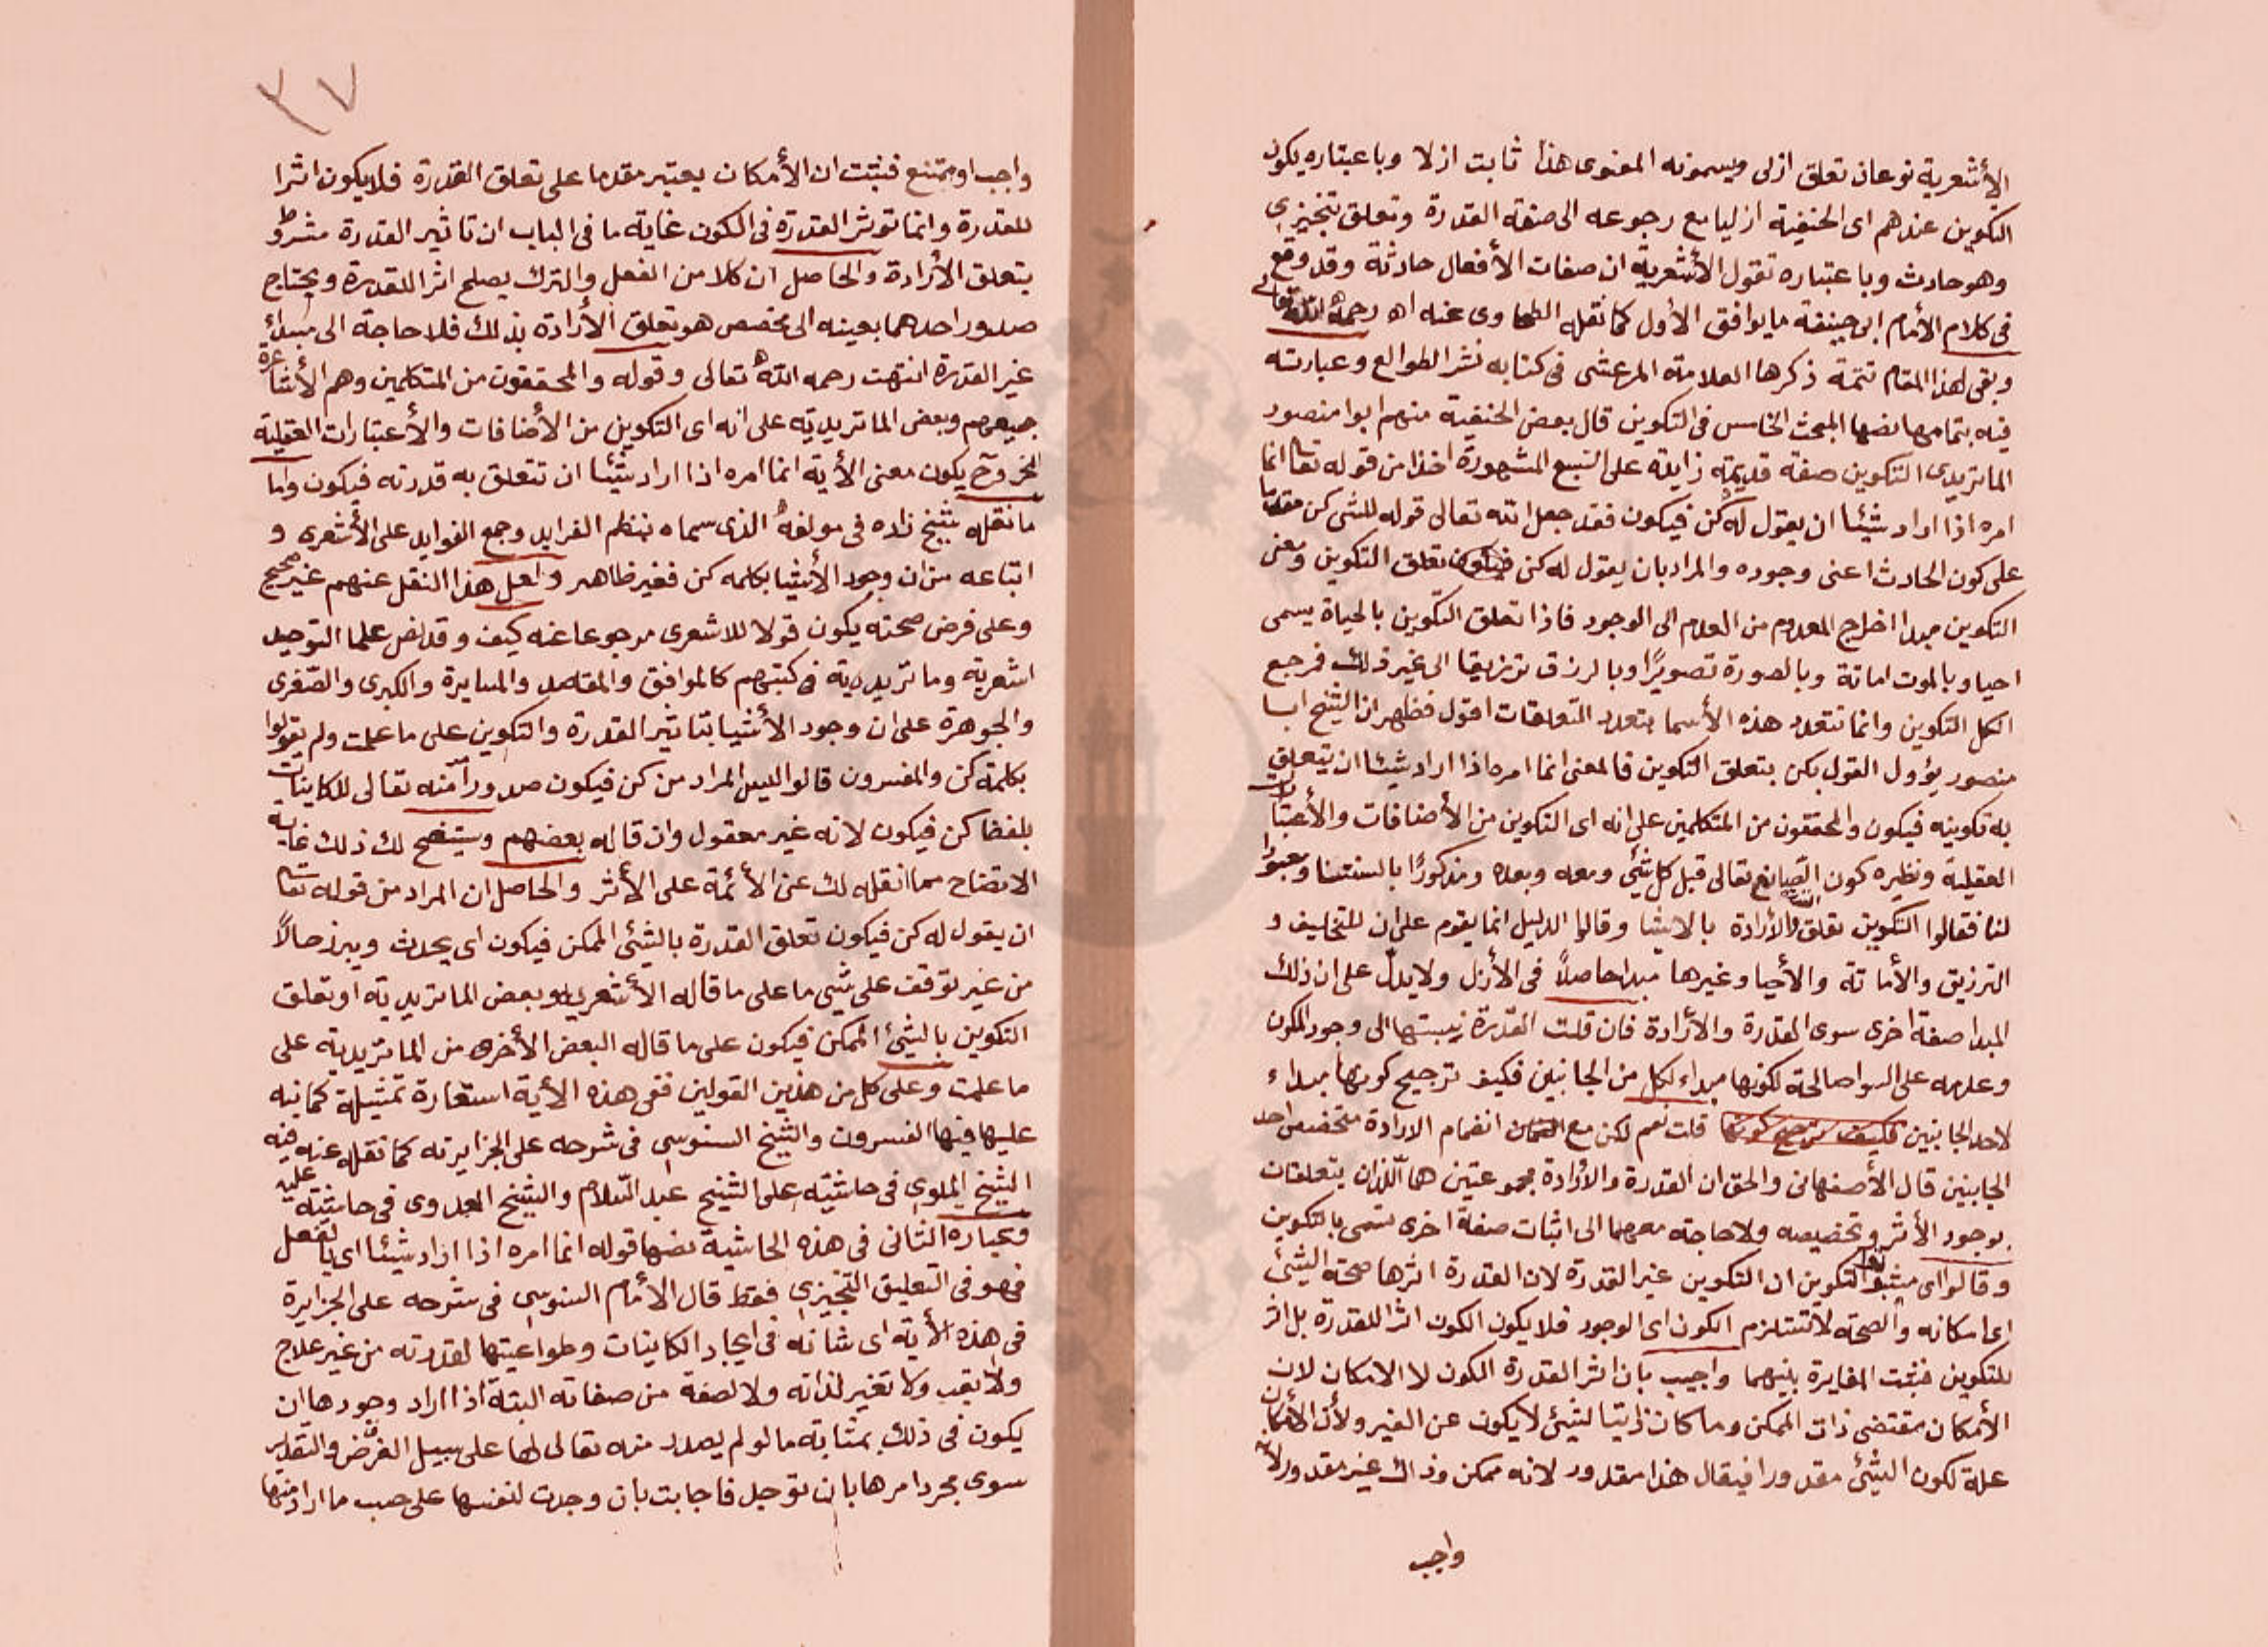 الأشعرية نوعان تعلق ازلى ويسمونه المعنوى هذا ثابت ازلا وباعتباره يكون
التكوين عندهم اى الحنفية ازليا مع رجوعه الى صفة القدرة وتعلق تنجيزي
وهو حادث وباعتباره تقول الأشعرية ان صفات الأفعال حادثة وقد وقع
فى كلام الأمام ابى حنيفة ما يوافق الأول كما نقله الطحاوى عنه اه رحمه الله تعالى
وبقى لهذا المقام تتمة ذكرها العلامة المرعشى فى كتابه نشر الطوالع وعبارته
فيه بتمامها نصها المبحث الخامس فى التكوين قال بعض الحنفية منهم ابوا منصور
الماتريدى التكوين صفة قديمة زايدة على السبع المشهورة اخذا من قوله تعا انما
امره اذا اراد شيئا ان يقول له كن فيكون فقد جعل الله تعالى قوله للشى كن مقدما
على كون الحادث اعنى وجوده والمراد بان يقول له كن فيكون تعلق التكوين ومعنى
التكوين مبدا اخراج المعدوم من العدم الى الوجود فاذا تعلق التكوين بالحياة يسمى
احيا وبالموت اماتة وبالصورة تصويرًا وبالرزق ترزيقا الى غير ذلك فرجع
الكل التكوين وانما تتعدد هذه الأسما بتعدد التعلقات اقول فظهر ان الشيخ ابا
منصور يؤول القول بكن بتعلق التكوين فالمعنى انما امره اذا اراد شيئا ان يتعلق
به تكوينه فيكون والمحققون من المتكلمين على انه اى التكوين من الأضافات والأعتبارات
العقلية ونظيره كون الصانع تعالى قبل كل شئ ومعه وبعده ومذكورًا بالسنتنا ومعبودا
لنا فقالوا التكوين تعلق والأرادة بالاشيا وقالوا الدليل انما يقوم على ان للتخليف و
الترزيق والأماتة والأحيا وغيرها مبدا حاصلاً فى الأزل ولا يدلّ على ان ذلك
المبدا صفة اخرى سوى القدرة والأرادة فان قلت القدرة نسبتها الى وجود المكون
وعدمه على السوا صالحة لكونها مبداء لكل من الجانبين فكيف ترجيح كونها مبداء
لاحد الجانبين فكيف ترجيح كونها قلت نعم لكن مع انضمام الارادة متخصص احد
الجانبين قال الأصفهانى والحق ان القدرة والأرادة مجموعتين هما اللذان يتعلقان
بوجود الأثر وتخصيصه ولا حاجة معهما الى اثبات صفة اخرى تسمى بالتكوين
وقالوا اى مثبتوا التكوين ان التكوين غير القدرة لان القدرة اثرها صحة الشئ
اى امكانه والصحة لا تستلزم الكون اى الوجود فلا يكون الكون اثرا للقدرة بل اثر
للتكوين فثبت المغايرة بينهما واجيب بان اثر القدرة الكون لا الامكان لان
الأمكان مقتضى ذات الممكن وما كان ذاتيا لشئ لا يكون عن الغير ولأن الأمكان
علة لكون الشئ مقدورا فيقال هذا مقدور لانه ممكن وذاك غير مقدور لأنه
واجب
٣٧
واجب او ممتنع فثبتت ان الأمكان يعتبر مقدما على تعلق القدرة فلا يكون اثرا
للقدرة وانما توثر القدرة فى الكون غاية ما فى الباب ان تاثير القدرة مشروط
بتعلق الأرادة والحاصل ان كلا من الفعل والترك يصلح اثرا للقدرة ويحتاج
صدور احدهما بعينه الى مخصص هو تعلق الأرادة بذلك فلا حاجة الى مبداء
غير القدرة انتهت رحمه الله تعالى وقوله والمحققون من المتكلمين وهم الأشاعرة
جميعهم وبعض الماتريدية على انه اى التكوين من الأضافات والأعتبارات العقلية
الخ وح يكون معنى الأية انما امره اذا اراد شيئا ان تتعلق به قدرته فيكون واما
ما نقله شيخ زاده فى مولفه الذى سماه نظم الفرايد وجمع الفوايد على الأشعرى و
اتباعه من ان وجود الأشيا بكلمه كن فغير ظاهر ولعل هذا النقل عنهم غير صحيح
وعلى فرض صحته يكون قولا للاشعرى مرجوعا عنه كيف وقد نص علما التوحيد
اشعرية وماتريدية فى كتبهم كالموافق والمقاصد والمسايرة والكبرى والصغرى
والجوهرة على ان وجود الأشيا بتاثير القدرة والتكوين على ما علمت ولم يقولوا
بكلمة كن والمفسرون قالوا ليس المراد من كن فيكون صدورا منه تعالى للكاينات
بلفظ كن فيكون لانه غير معقول وان قاله بعضهم وسيتضح لك ذلك غاية
الاتضاح مما انقله لك عن الأئمة على الأثر والحاصل ان المراد من قوله تعا
ان يقول له كن فيكون تعلق القدرة بالشئ الممكن فيكون اى يحدث ويبرز حالاً
من غير توقف على شى ما على ما قاله الأشعرى وبعض الماتريدية او تعلق
التكوين بالشئ الممكن فيكون على ما قاله البعض الأخر من الماتريدية على
ما علمت وعلى كل من هذين القولين ففى هذه الأية استعارة تمثيلة كما نبه
عليها فيها المفسرون والشيخ السنوسى فى شرحه على الجزايرته كما نقله عنه فيه
الشيخ الملوى فى حاشيته على الشيخ عبد السلام والشيخ العدوى فى حاشيته عليه
وعبارة الثانى فى هذه الحاشية نصها قوله انما امره اذا اراد شيئا اى بالفعل
فهو فى التعليق التنجيزى فقط قال الأمام السنوسى فى شرحه على الجزايرة
فى هذه الأية اى شانه فى ايجاد الكاينات وطواعيتها لقدرته من غير علاج
ولا تعب ولا تغير لذاته ولا لصفة من صفاته البتة اذا اراد وجودها ان
يكون فى ذلك بمثابة ما لو لم يصدر منه تعالى لها على سبيل الفرض والتقدير
سوى مجرد امرها بان توجد فاجابت بان وجدت لنفسها على حسب ما اراد منها